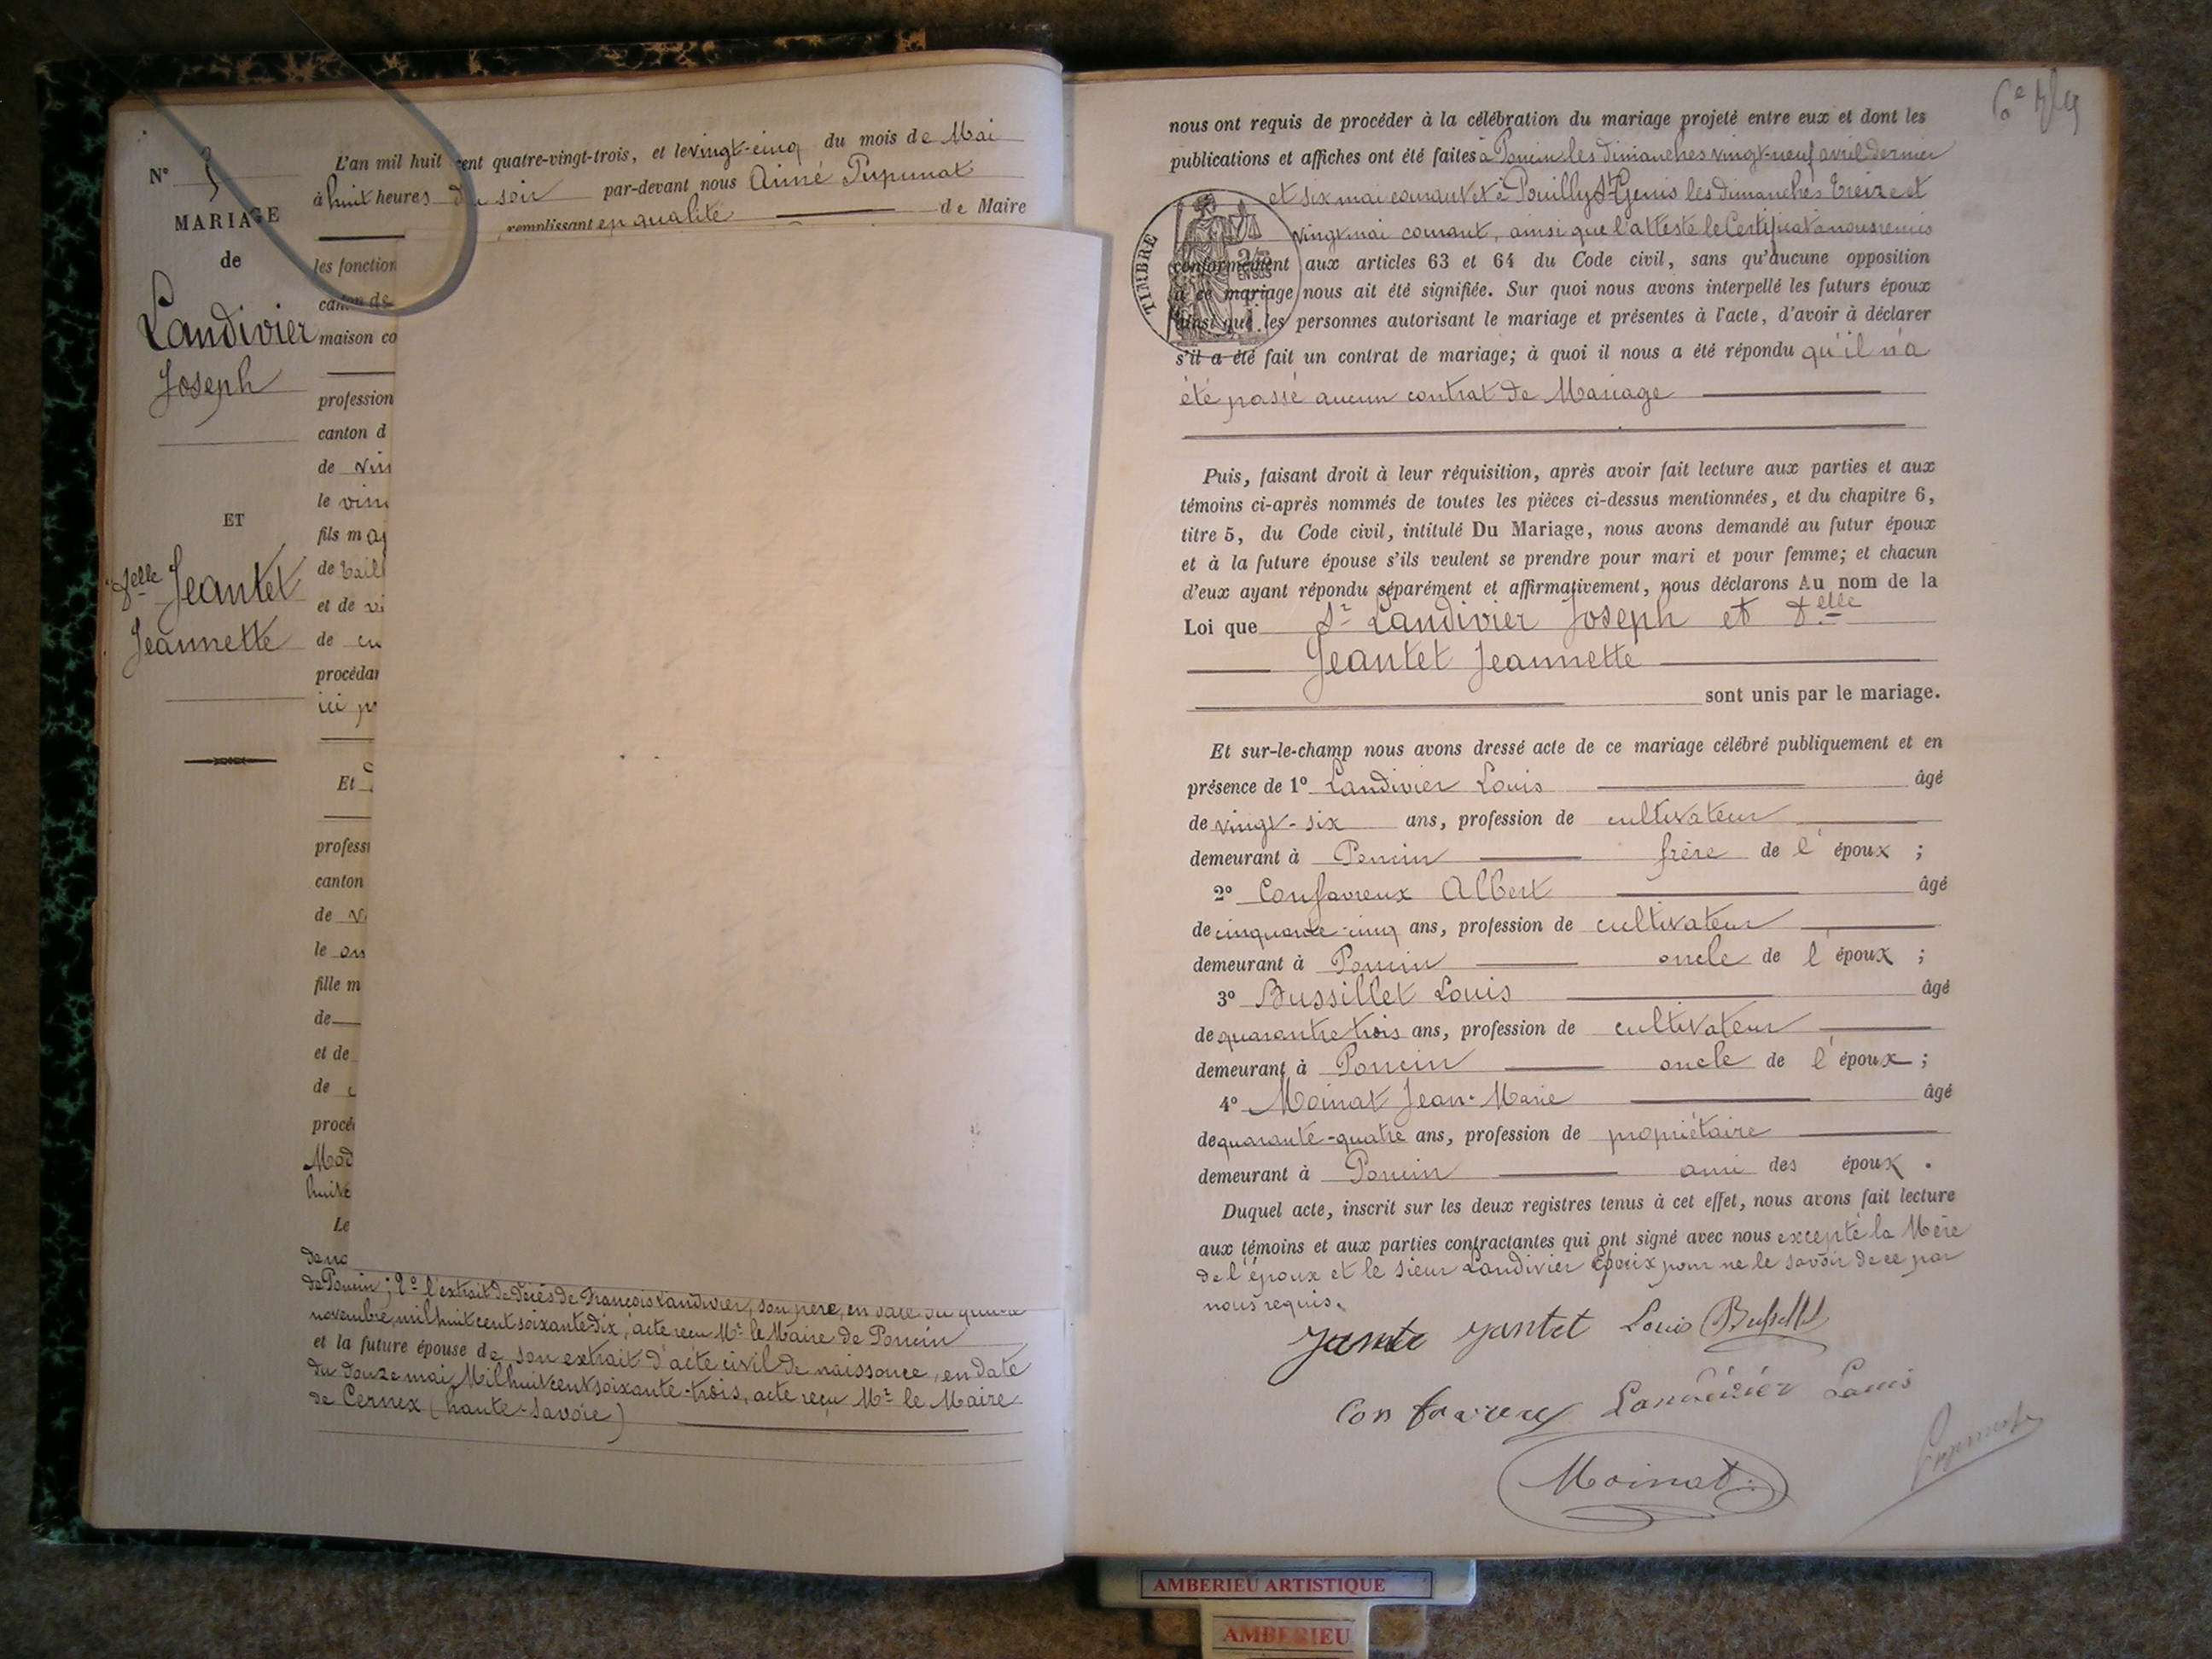 N° 3
MARIAGE
de
Landivier
Joseph
ET
Jeantet
Jeannette
L'an mil huit cent quatre-vingt-trois, et le vingt-cinq du mois de Mai
à huit heures du soir par-devant nous Aimé Pupunat
remplissant en qualité de Maire
les fonction
canton de
maison co
profession
canton d
de vin
le vin
fils maj
de taill
et de vi
de cu
procédan
ici pr
Et
profess
canton
de v
le on
fille m
de
et de
de c
procé
Mad
huite
Le
de na
de Poncin; 2° l'extrait de décès de François Landivier, son père, en date du quinze
novembre mil huit cent soixante-dix, acte reçu Mr le Maire de Poncin
et la future épouse de son extrait d'acte civil de naissance, en date
du douze mai, Mil huit cent soixante-trois, acte reçu Mr le Maire
de Cernex (haute-Savoie)
nous ont requis de procéder à la célébration du mariage projeté entre eux et dont les
publications et affiches ont été faites à Poncin les dimanches vingt neuf avril dernier
et six mai courant et à Pouilly St Genis les dimanches treize et
vingt mai courant, ainsi que l'atteste le Certificat à nous remis
TIMBRE
conformément aux articles 63 et 64 du Code civil, sans qu'aucune opposition
à ce mariage nous ait été signifiée. Sur quoi nous avons interpellé les futurs époux
ainsi que les personnes autorisant le mariage et présentes à l'acte, d'avoir à déclarer
s'il a été fait un contrat de mariage; à quoi il nous a été répondu qu'il n'a
été passé aucun contrat de Mariage
Puis, faisant droit à leur réquisition, après avoir fait lecture aux parties et aux
témoins ci-après nommés de toutes les pièces ci-dessus mentionnées, et du chapitre 6,
titre 5, du Code civil, intitulé Du Mariage, nous avons demandé au futur époux
et à la future épouse s'ils veulent se prendre pour mari et pour femme; et chacun
d'eux ayant répondu séparément et affirmativement, nous déclarons Au nom de la
Loi que Sr Landivier Joseph et Delle
Jeantet Jeannette
sont unis par le mariage.
Et sur-le-champ nous avons dressé acte de ce mariage célébré publiquement et en
présence de 1° Landivier Louis âgé
de vingt-six ans, profession de cultivateur
demeurant à Poncin frère de l'époux ;
2° Confavreux Albert âgé
de cinquante-cinq ans, profession de cultivateur
demeurant à Poncin oncle de l'époux ;
3° Bussillet Louis âgé
de quarante trois ans, profession de cultivateur
demeurant à Poncin oncle de l'époux ;
4° Moinat Jean-Marie âgé
de quarante-quatre ans, profession de propriétaire
demeurant à Poncin ami des époux .
Duquel acte, inscrit sur les deux registres tenus à cet effet, nous avons fait lecture
aux témoins et aux parties contractantes qui ont signé avec nous excepté la Mère
de l'époux et le sieur Landivier Epoux pour ne le savoir de ce par
nous requis.
Jantet Louis Bussillet
Confavreux Landivier Louis
Moinat
Pupunat
AMBERIEU ARTISTIQUE
AMBERIEU